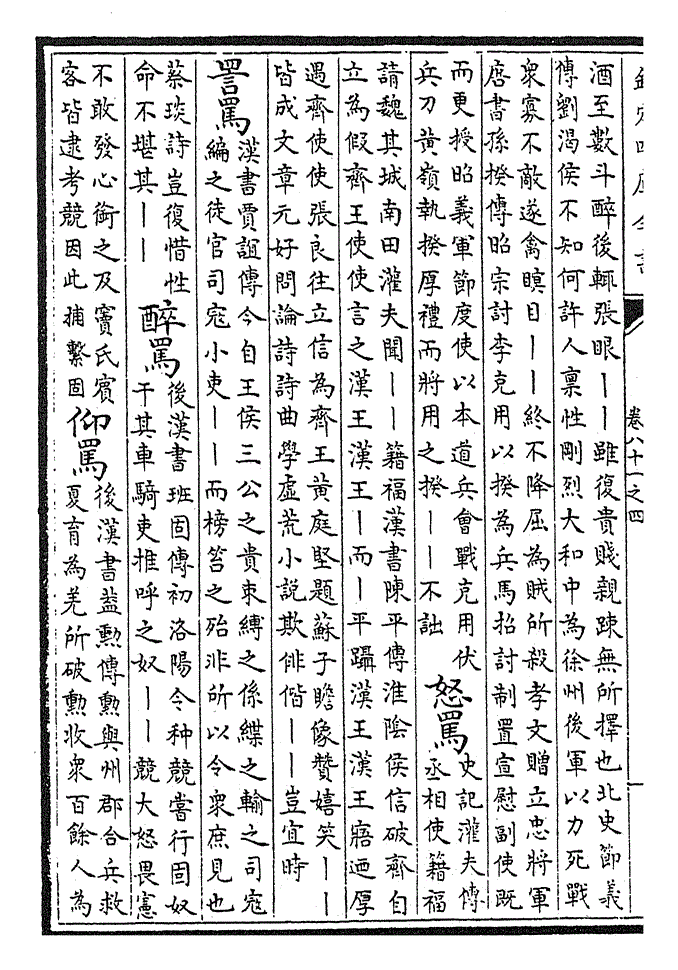 欽定四庫全書
卷八十一之四
酒至數斗醉後輒張眼丨丨雖復貴賤親疎無所擇也北史節義
傳劉渴侯不知何許人稟性剛烈大和中為徐州後軍以力死戰
衆寡不敵遂禽瞋目丨丨終不降屈為賊所殺孝文贈立忠將軍
唐書孫揆傳昭宗討李克用以揆為兵馬招討制置宣慰副使既
而更授昭義軍節度使以本道兵會戰克用伏
兵刀黃嶺執揆厚禮而將用之揆丨丨不詘
怒罵
史記灌夫傳
丞相使籍福
請魏其城南田灌夫聞丨丨籍福漢書陳平傳淮陰侯信破齊自
立為假齊王使使言之漢王漢王丨而丨平躡漢王漢王寤迺厚
遇齊使使張良往立信為齊王黃庭堅題蘇子瞻像贊嬉笑丨丨
皆成文章元好問論詩詩曲學虛荒小説欺俳偕丨丨豈宜時
詈罵
漢書賈誼傳今自王侯三公之貴束縛之係緤之輸之司宼
編之徒官司宼小吏丨丨而榜笞之殆非所以令衆庶見也
蔡琰詩豈復惜性
命不堪其丨丨
醉罵
後漢書班固傳初洛陽令种競嘗行固奴
干其車騎吏推呼之奴丨丨競大怒畏憲
不敢發心銜之及竇氏賓
客皆逮考競因此捕繫固
仰罵
後漢書蓋勲傳勲與州郡合兵救
夏育為羌所破勲收衆百餘人為